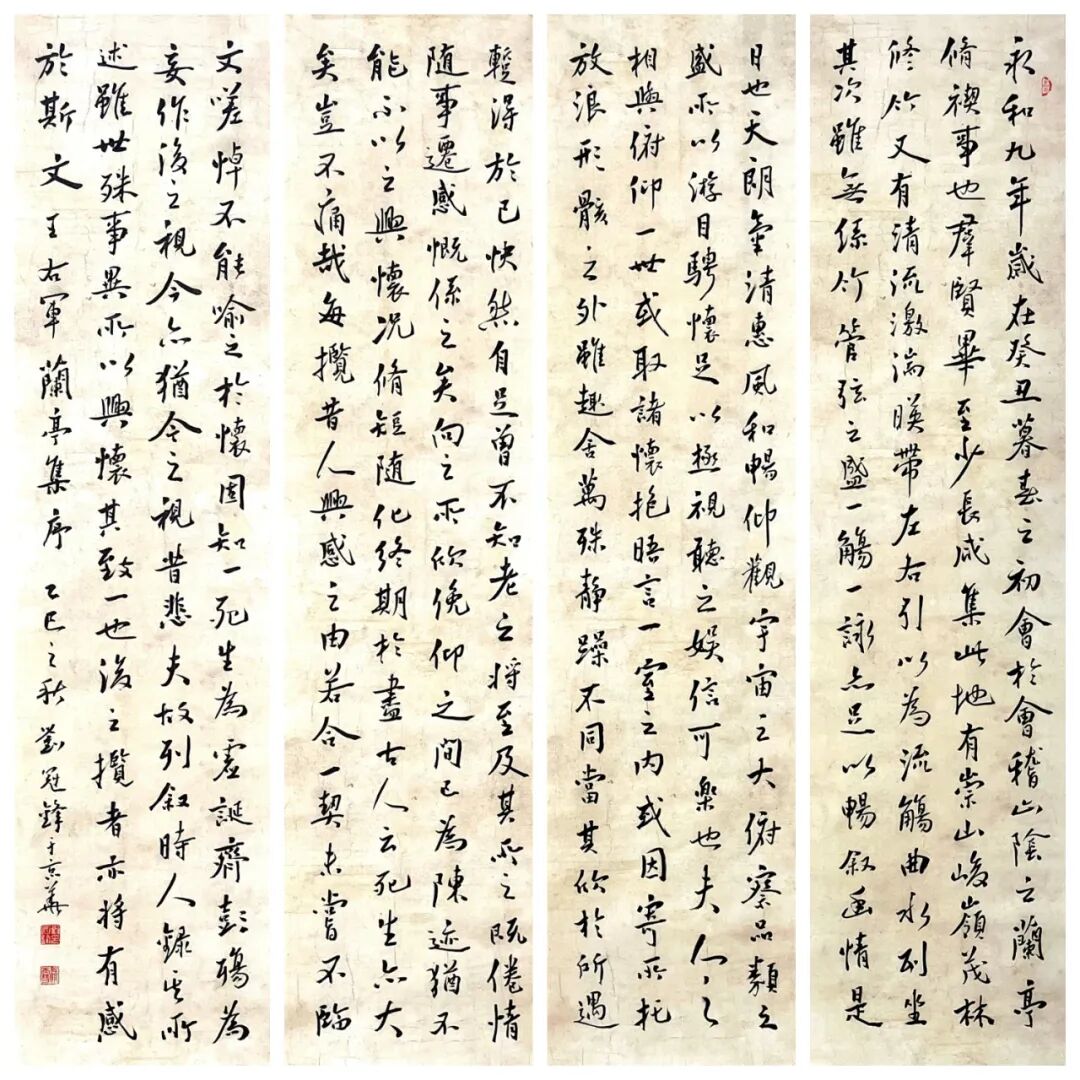 永和九年歲在癸丑暮春之初會於會稽山陰之蘭亭
脩禊事也羣賢畢至少長咸集此地有崇山峻嶺茂林
修竹又有清流激湍暎帶左右引以為流觴曲水列坐
其次雖無絲竹管弦之盛一觴一詠亦足以暢叙幽情是
日也天朗氣清惠風和暢仰觀宇宙之大俯察品類之
盛所以游目騁懷足以極視聽之娛信可樂也夫人之
相與俯仰一世或取諸懷抱晤言一室之內或因寄所托
放浪形骸之外雖趣舍萬殊靜躁不同當其欣於所遇
暫得於己快然自足曾不知老之將至及其所之既倦情
隨事遷感慨係之矣向之所欣俛仰之間已為陳迹猶不
能不以之興懷況脩短隨化終期於盡古人云死生亦大
矣豈不痛哉每攬昔人興感之由若合一契未嘗不臨
文嗟悼不能喻之於懷固知一死生為虛誕齊彭殤為
妄作後之視今亦猶今之視昔悲夫故列叙時人錄其所
述雖世殊事異所以興懷其致一也後之攬者亦將有感
於斯文 王右軍蘭亭集序 乙巳之秋 劉冠鋒于京華